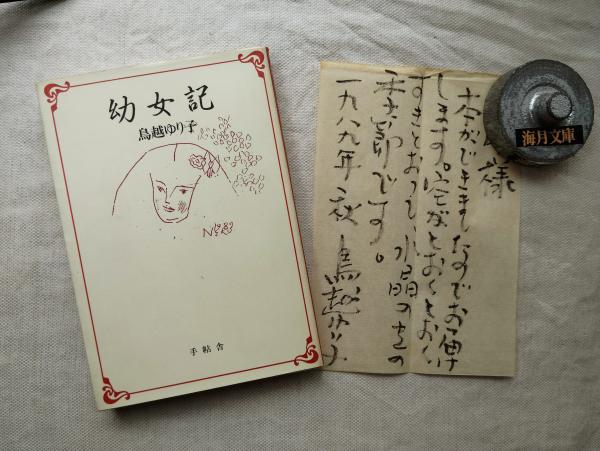 幼女記
鳥越ゆり子
手帖舎
様
本ができましたのでお届け
します。空がとおくとおく
すきとおって、水晶の
季節です。
一九八九年 秋 鳥越ゆり子
海月文庫